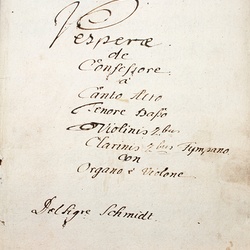 Vesperæ
de
Confessore
a
Canto Alto
Tenore Basso
Violinis 2bus
Clarinis 2bus Tympano
con
Organo e Violone
Del Sigre Schmidt.